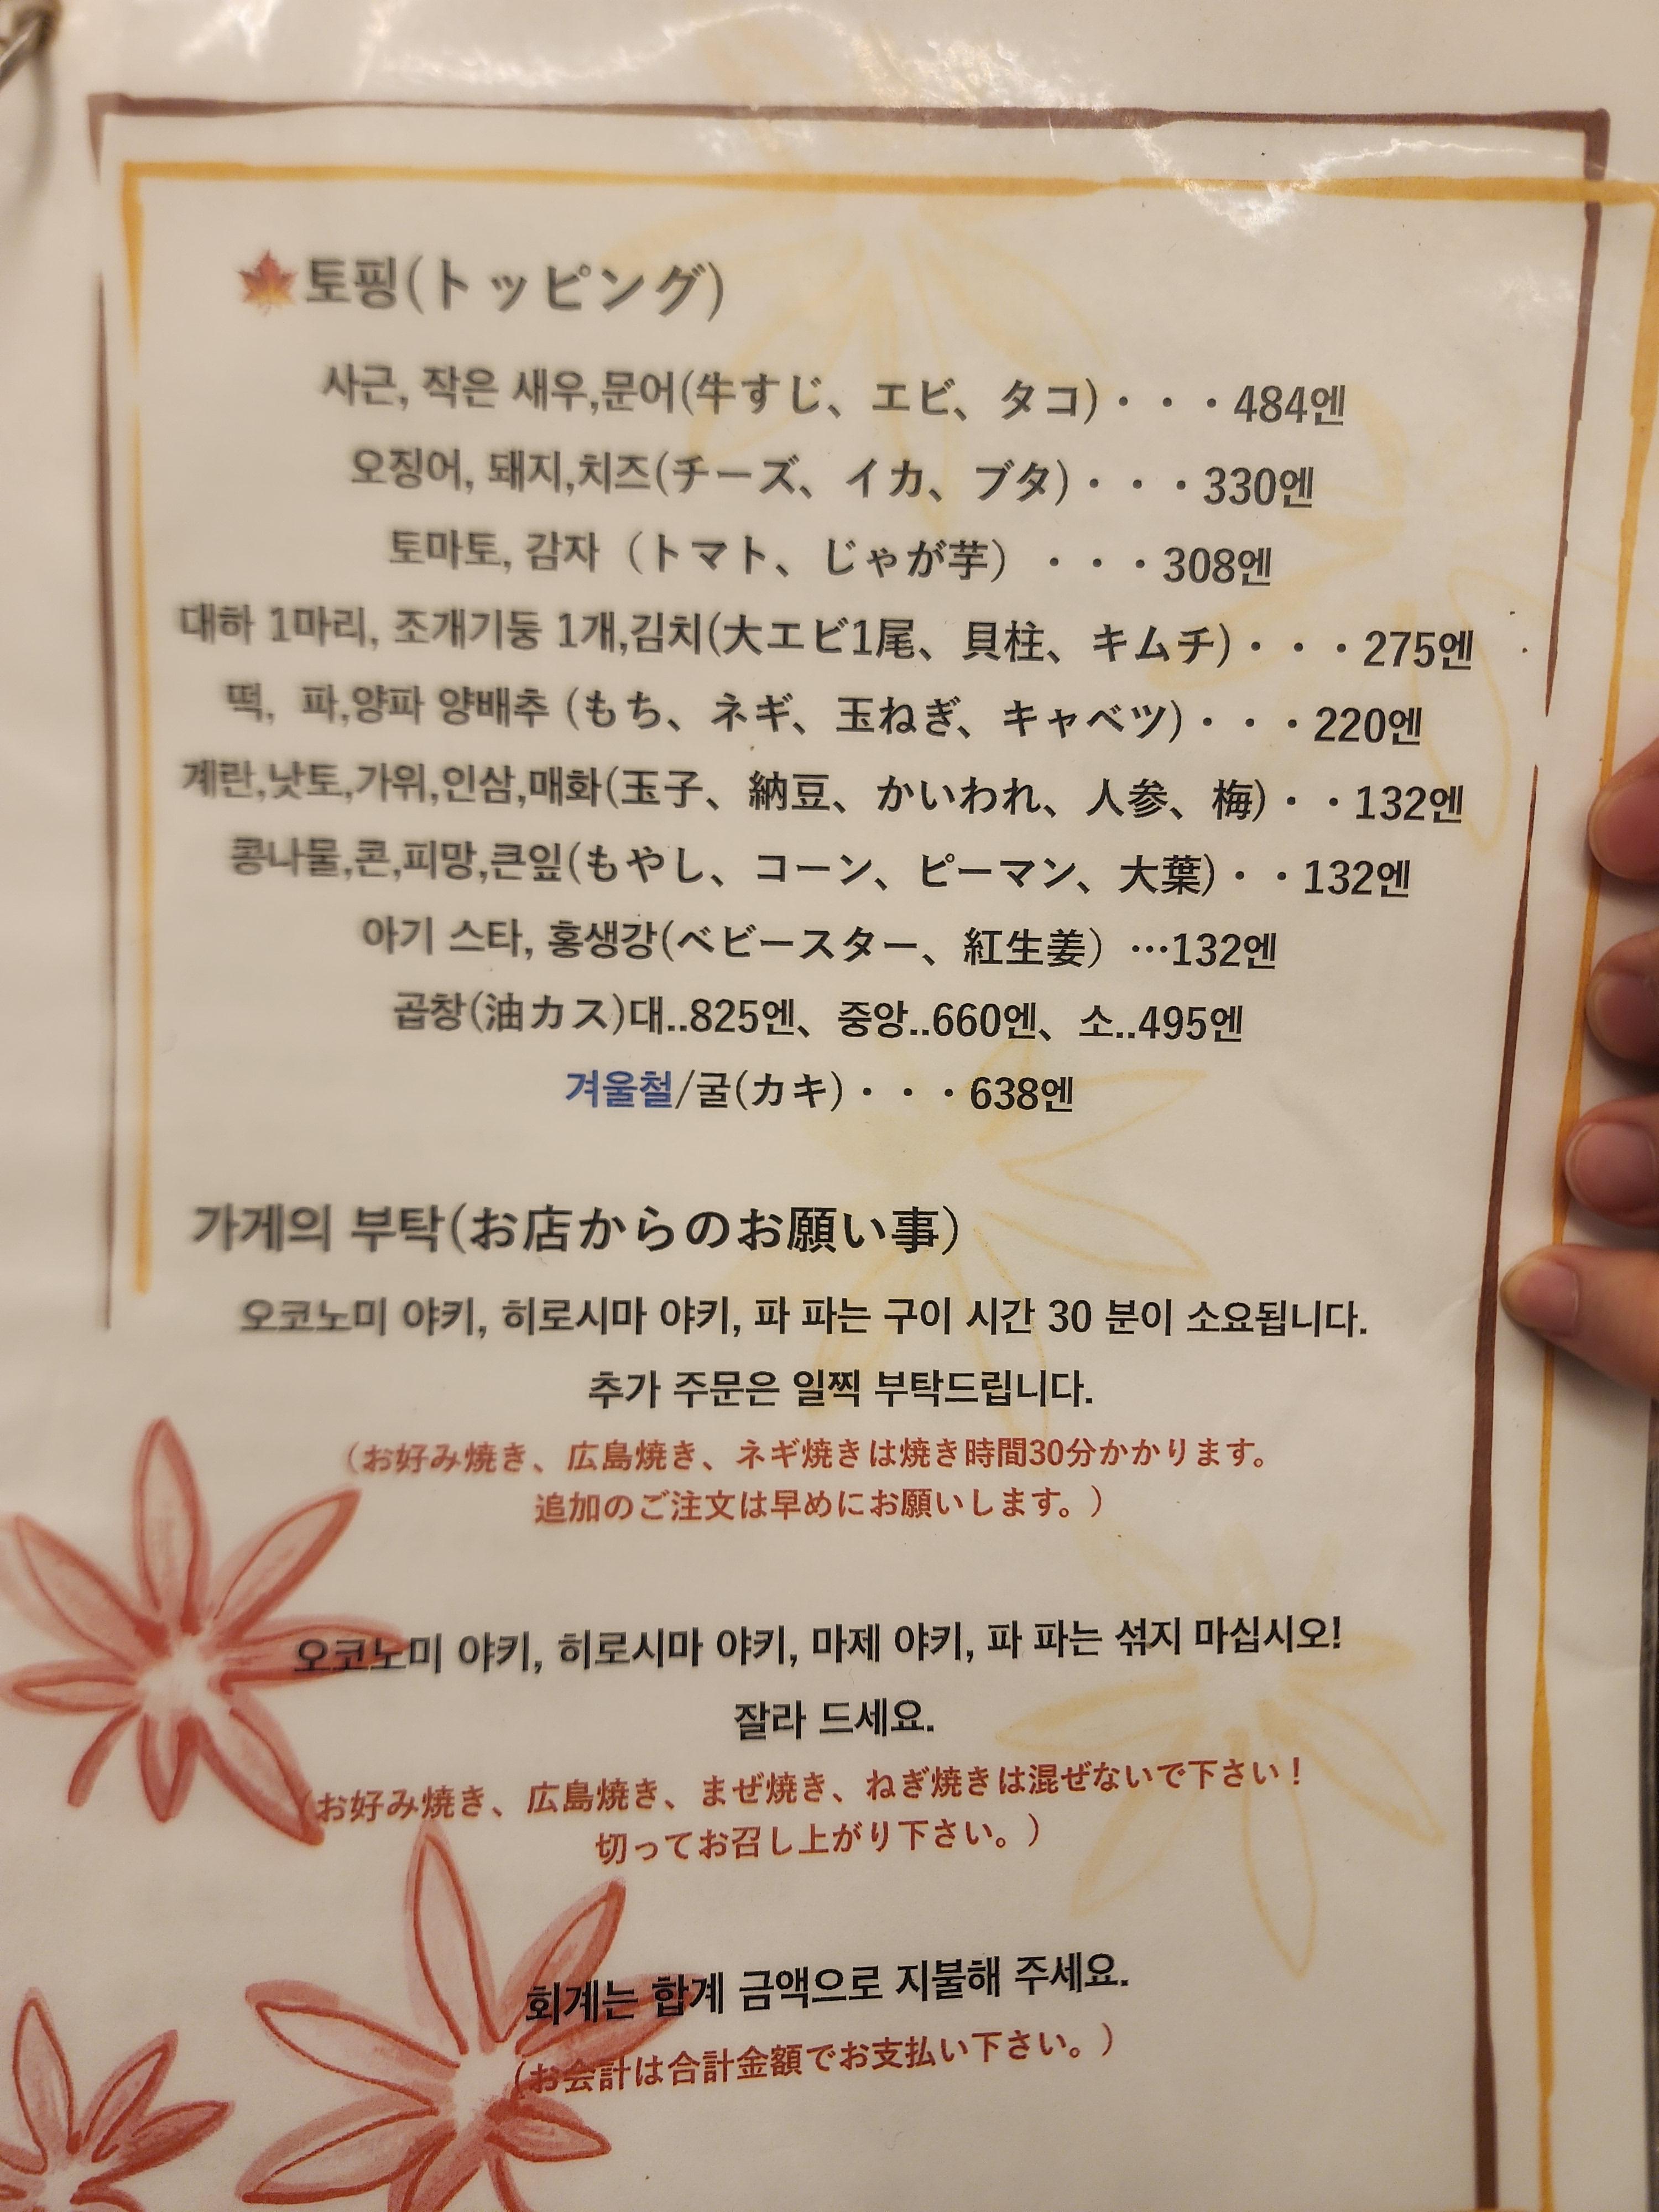 🍁토핑(トッピング)
사근, 작은 새우,문어(牛すじ、エビ、タコ)・・・484엔
오징어, 돼지,치즈(チーズ、イカ、ブタ)・・・330엔
토마토, 감자（トマト、じゃが芋）・・・308엔
대하 1마리, 조개기둥 1개,김치(大エビ1尾、貝柱、キムチ)・・・275엔
떡, 파,양파 양배추 (もち、ネギ、玉ねぎ、キャベツ)・・・220엔
계란,낫토,가위,인삼,매화(玉子、納豆、かいわれ、人参、梅)・・132엔
콩나물,콘,피망,큰잎(もやし、コーン、ピーマン、大葉)・・132엔
아기 스타, 홍생강(ベビースター、紅生姜）…132엔
곱창(油カス)대..825엔、중앙..660엔、소..495엔
겨울철/굴(カキ)・・・638엔
가게의 부탁(お店からのお願い事)
오코노미 야키, 히로시마 야키, 파 파는 구이 시간 30 분이 소요됩니다.
추가 주문은 일찍 부탁드립니다.
（お好み焼き、広島焼き、ネギ焼きは焼き時間30分かかります。
追加のご注文は早めにお願いします。）
오코노미 야키, 히로시마 야키, 마제 야키, 파 파는 섞지 마십시오!
잘라 드세요.
（お好み焼き、広島焼き、まぜ焼き、ねぎ焼きは混ぜないで下さい！
切ってお召し上がり下さい。）
회계는 합계 금액으로 지불해 주세요.
（お会計は合計金額でお支払い下さい。）